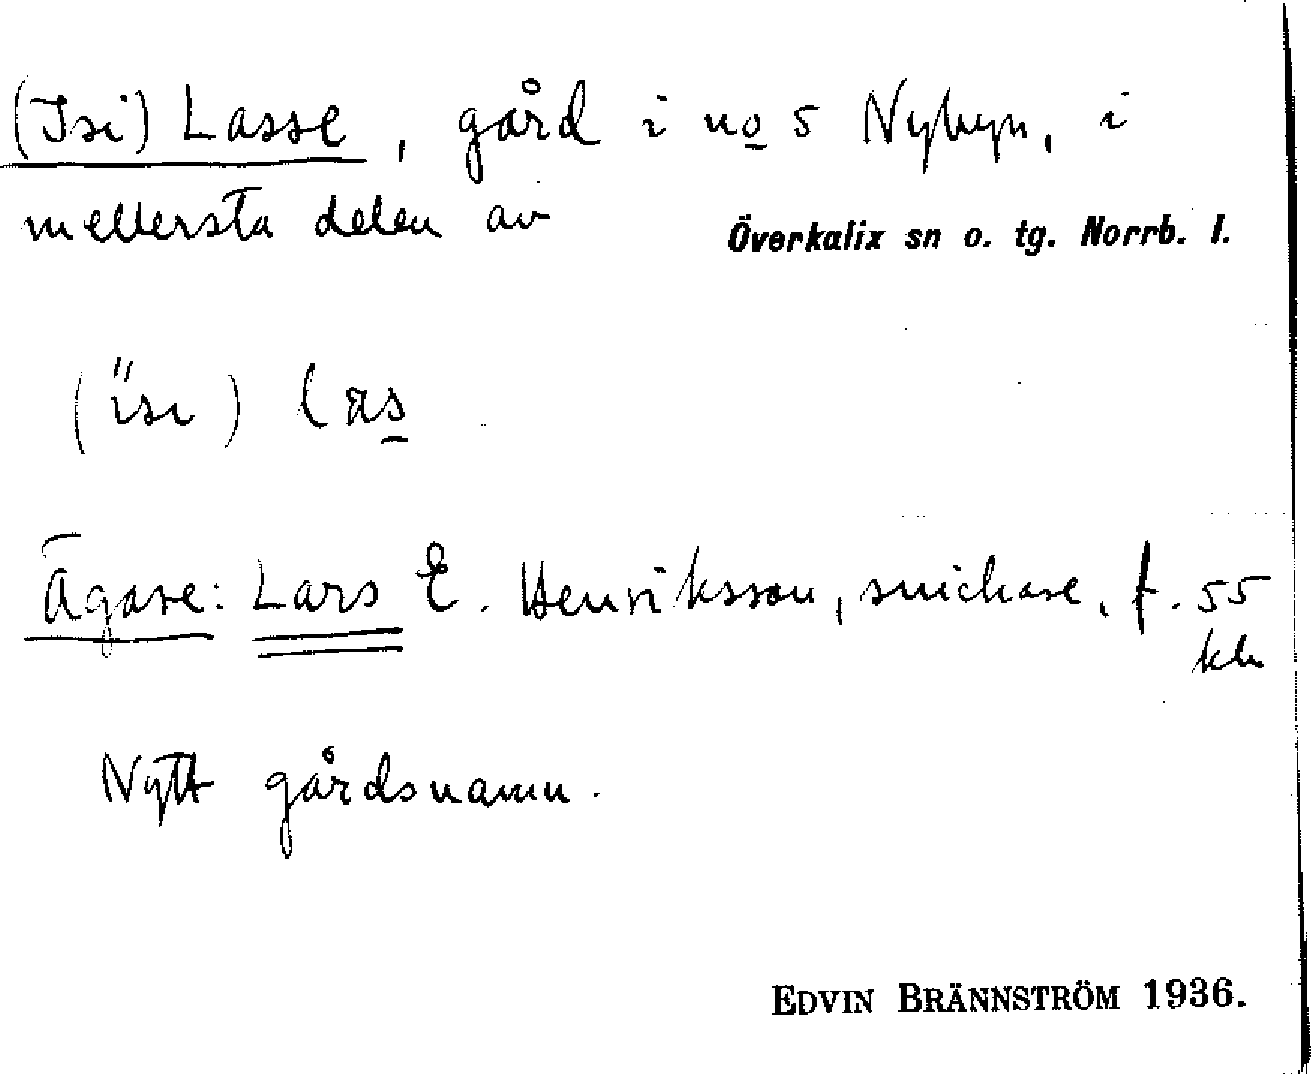 (Isi) Lasse, gård i no 5 Nybyn, i
mellersta delen av Överkalix sn o. tg. Norrb. l.
Ägare: Lars E. Henriksson, snickare, f. 55
Nytt gårdsnamn.
EDVIN BRÄNNSTRÖM 1936.